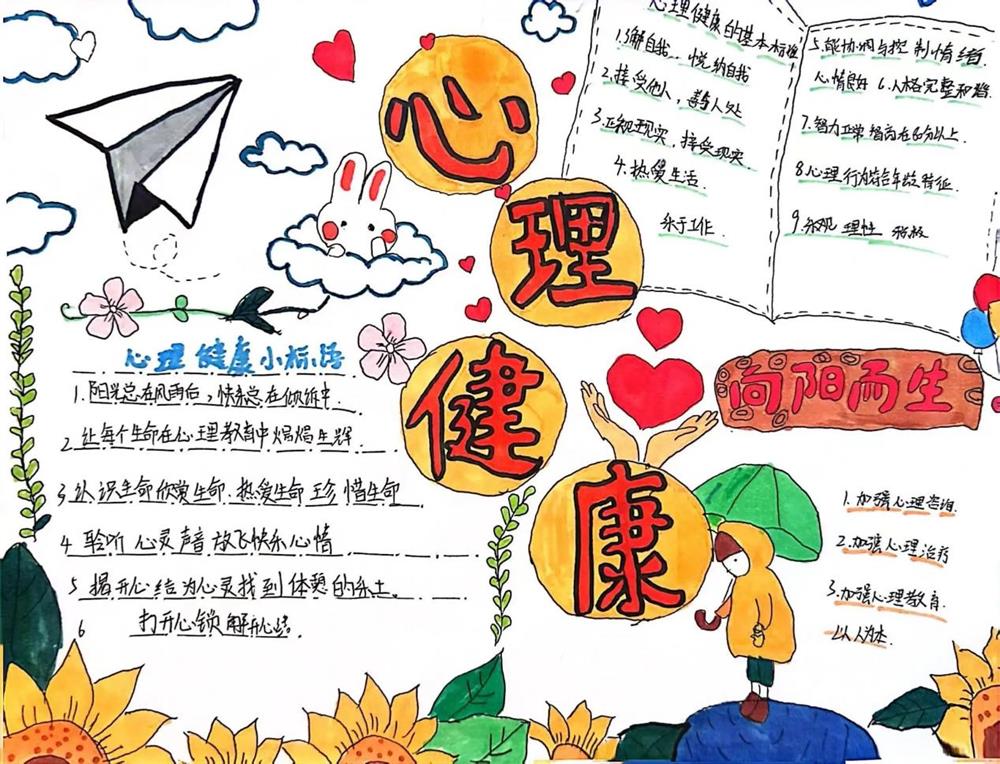 心理健康
心理健康的基本标准
1.了解自我、悦纳自我
2.接受他人，善与人处
3.正视现实，接受现实
4.热爱生活
乐于工作
5.能协调与控制情绪
心情良好 6.人格完整和稳
7.智力正常 智商在80分以上
8心理行为符合年龄特征
9.乐观 理性 积极
心理健康小标语
1.阳光总在风雨后，快乐总在倾诉中
2.让每个生命在心理教育中熠熠生辉
3认识生命欣赏生命.热爱生命珍惜生命
4 聆听心灵声音放飞快乐心情
5 揭开心结为心灵找到休憩的乐土。
6 打开心锁解开心结.
向阳而生
1.加强心理咨询
2.加强心理治疗
3.加强心理教育
以人为本